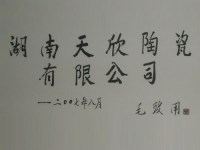 湖南天欣陶瓷
有限公司
——二〇〇七年八月
毛致用